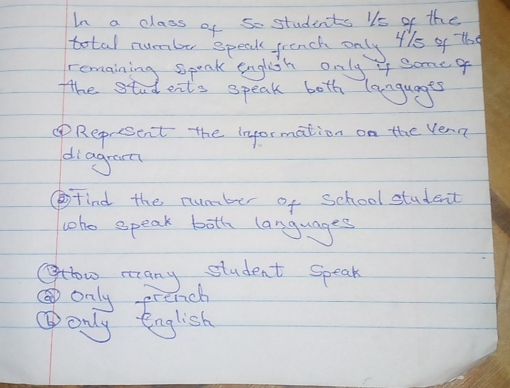 In a class of 50 students 1/5 of the
total number speak french only 4/5 of the
remaining speak english only if some of
the students speak both languages
① Represent the information on the Venn
diagram
② Find the number of school student
who speak both languages
③ How many student speak
ⓐ only french
ⓑ only English